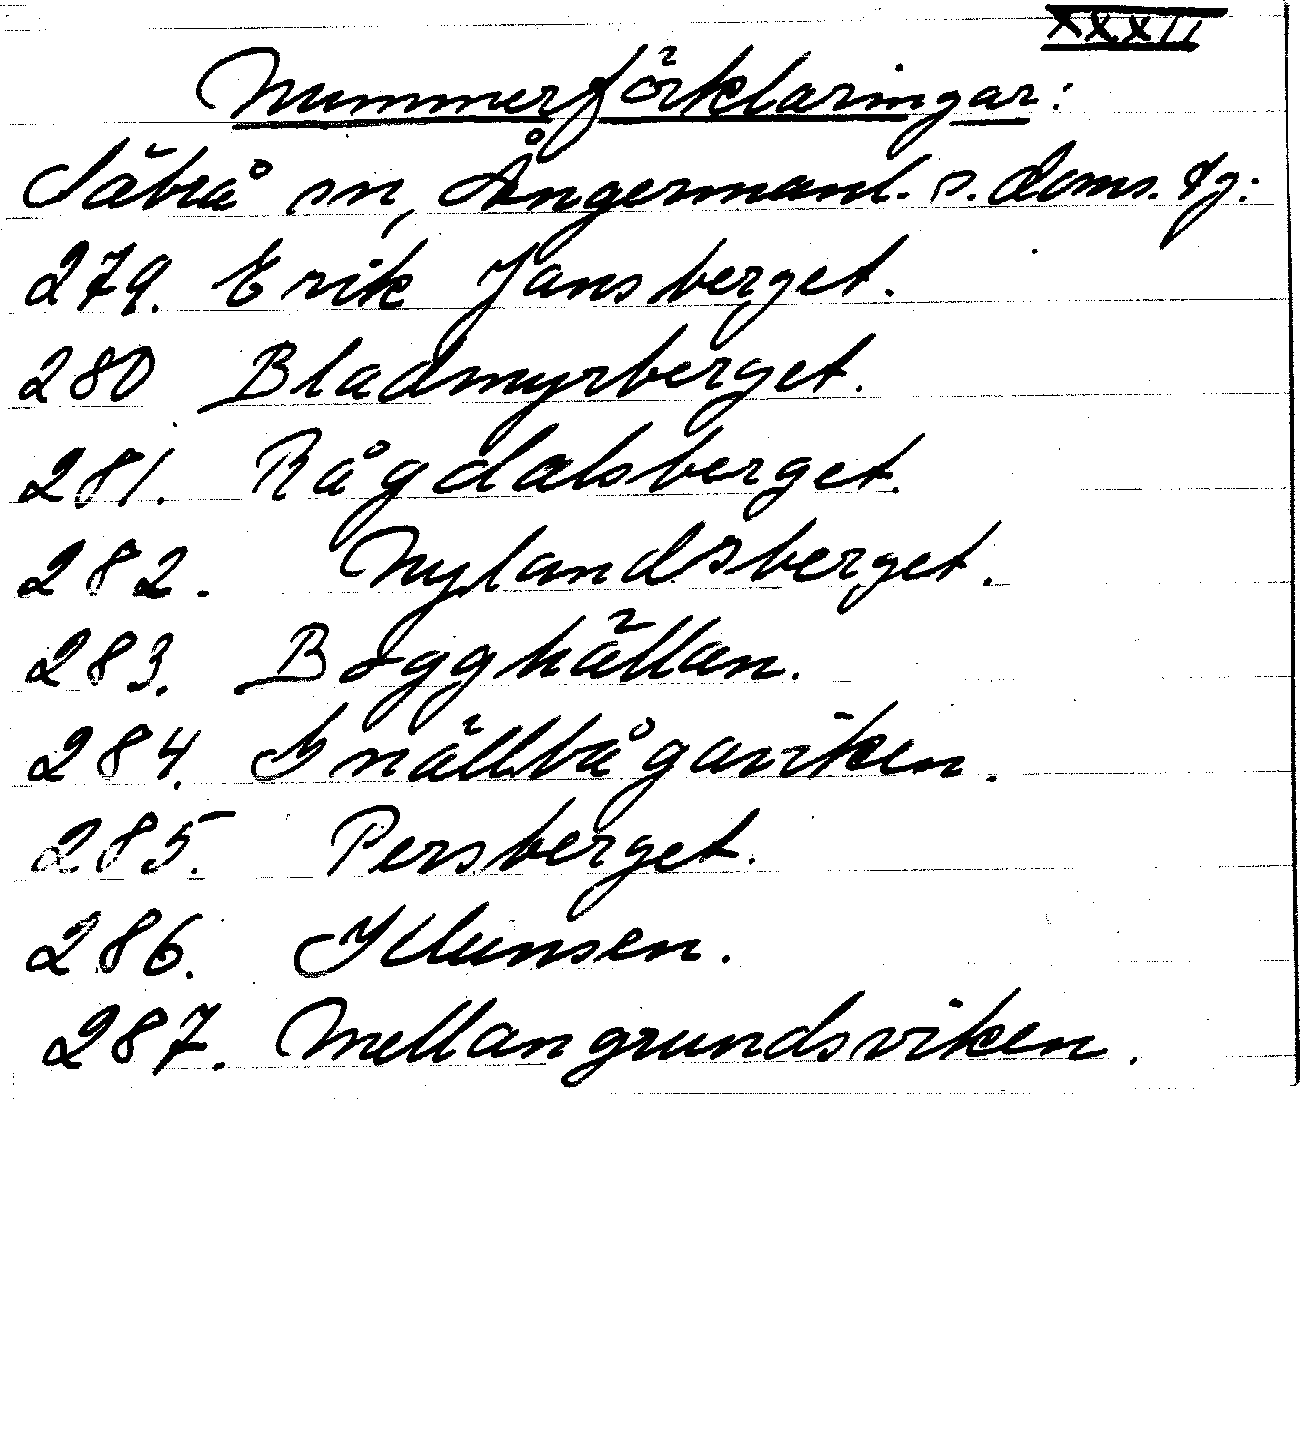 XXXII
Nummerförklaringar:
Säbrå sn, Ångermanl. s. doms. tg:
279. Erik Jansberget.
280 Bladmyrberget.
281. Rågdalsberget.
282. Nylandsberget.
283. Bogghällan.
284. Snällbågaviken.
285. Persberget.
286.
287. Mellangrundsviken.